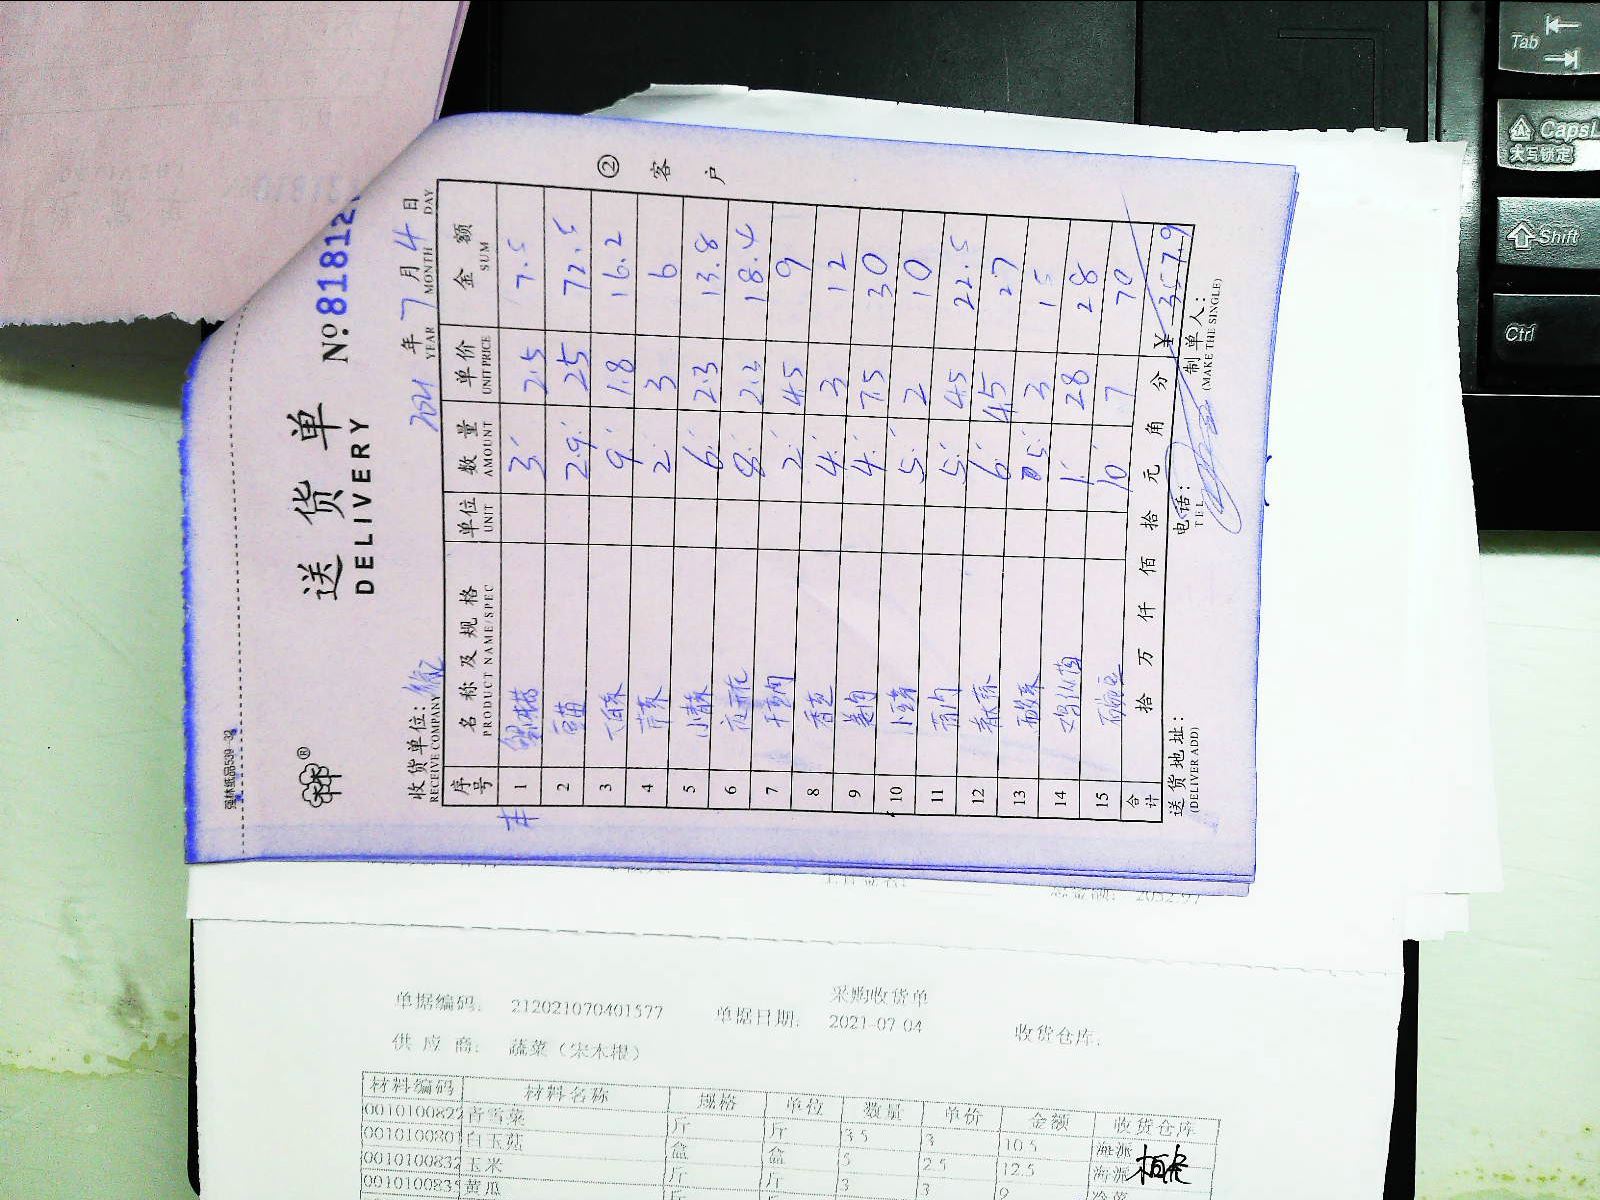 强林纸品539-32
送货单
DELIVERY
No. 81812
2021 年 7 月 4 日
YEAR MONTH DAY
收货单位：
RECEIVE COMPANY
② 客户
序号 名称及规格 单位 数量 单价 金额
PRODUCT NAME/SPEC UNIT AMOUNT UNIT PRICE SUM
1 3 2.5 7.5
2 豆苗 2.9 25 72.5
3 9 1.8 16.2
4 芹菜 2 3 6
5 小青菜 6 2.3 13.8
6 8 2.3 18.4
7 2 4.5 9
8 香芹 4 3 12
9 姜肉 4 7.5 30
10 5 2 10
11 蒜肉 5 4.5 22.5
12 6 4.5 27
13 酸菜 5 3 15
14 鸡纵菌 1 28 28
15 豌豆 10 7 70
合计 拾 万 仟 佰 拾 元 角 分 ¥ 357.9
送货地址： 电话： 制单人：
(DELIVER ADD) TEL (MAKE THE SINGLE)
2032.97
采购收货单
单据编码： 212021070401577 单据日期： 2021-07-04 收货仓库：
供应商： 蔬菜（宋木根）
材料编码 材料名称 规格 单位 数量 单价 金额 收货仓库
0010100822 青雪菜 斤 斤 3.5 3 10.5 海派
0010100801 白玉菇 盒 盒 5 2.5 12.5 海派
0010100832 玉米 斤 斤 3 3 9 冷菜
0010100835 黄瓜
Tab
CapsL
大写锁定
Shift
Ctrl